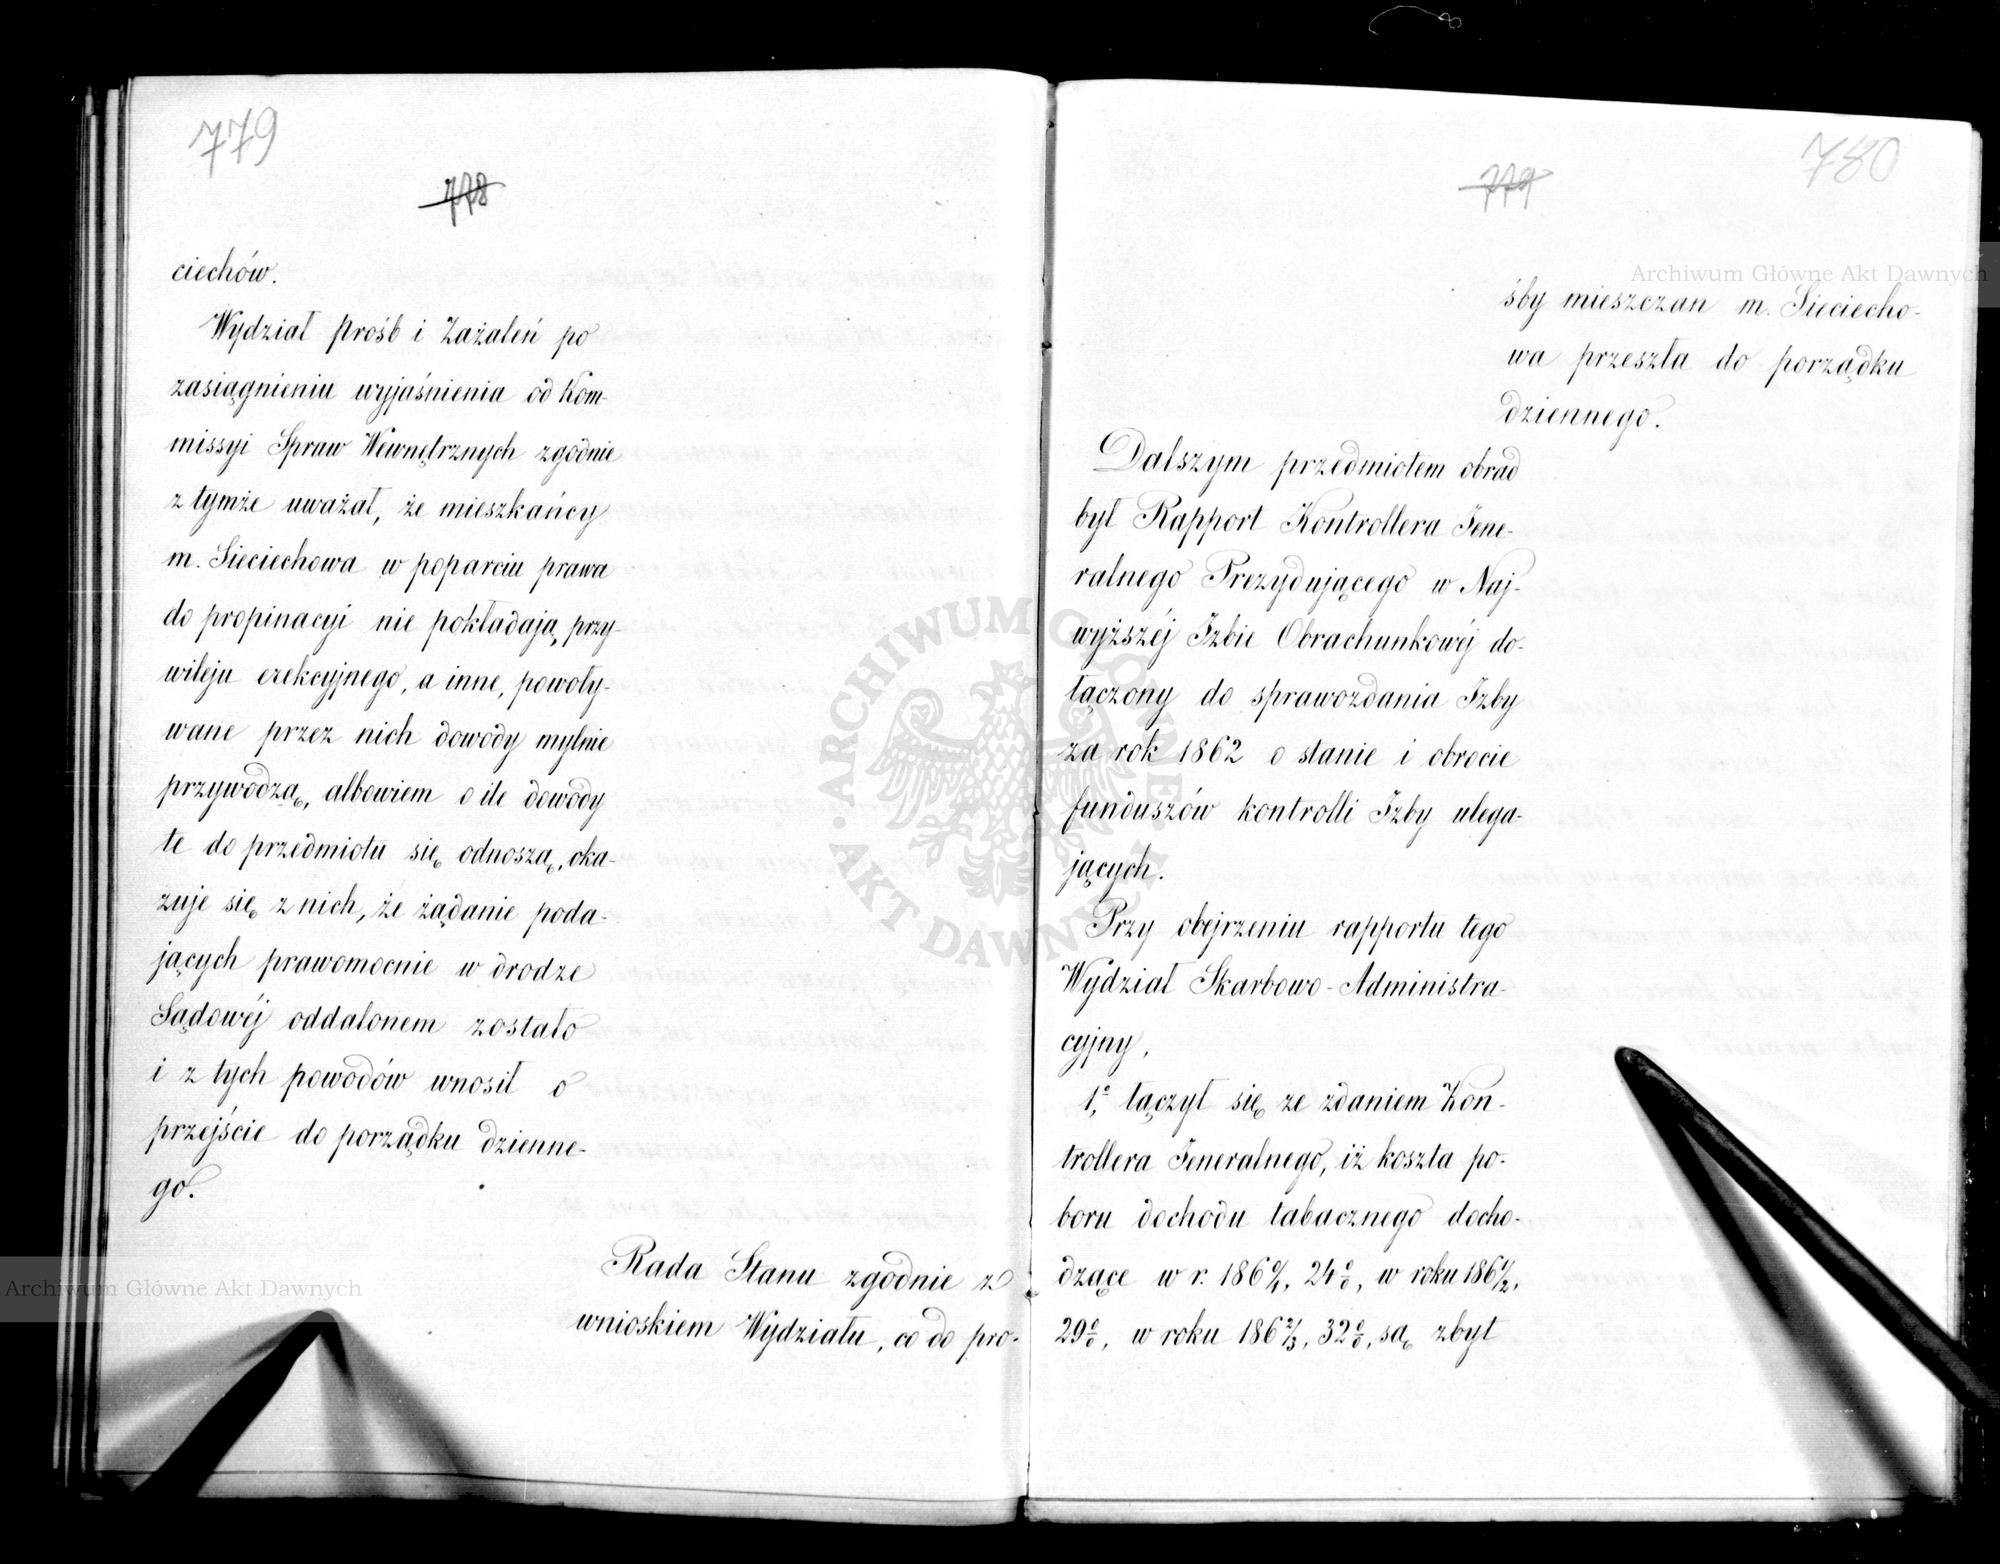 779
778
ciechów.
Wydział Prośb i Zażaleń po
zasiągnieniu wyjaśnienia od Kom-
missyi Spraw Wewnętrznych zgodnie
z tymże uważał, że mieszkańcy
m. Sieciechowa w poparciu prawa
do propinacyi nie pokładają przy-
wileju erekcyjnego, a inne, powoły-
wane przez nich dowody mylnie
przywodzą, albowiem o ile dowody
te do przedmiotu się odnoszą, oka-
zuje się z nich, że żądanie poda-
jących prawomocnie w drodze
Sądowéj oddalonem zostało
i z tych powodów wnosił o
przejście do porządku dzienne-
go.
Rada Stanu zgodnie z
wnioskiem Wydziału, co do pro-
780
779
śby mieszczan m. Sieciecho-
wa przeszła do porządku
dziennego.
Dalszym przedmiotem obrad
był Rapport Kontrollera Jene-
ralnego Prezydującego w Naj-
wyższéj Izbie Obrachunkowéj do-
łączony do sprawozdania Izby
za rok 1862 o stanie i obrocie
funduszów kontrolli Izby ulega-
jących.
Przy obejrzeniu rapportu tego
Wydział Skarbowo-Administra-
cyjny,
1º, łączył się ze zdaniem Kon-
trollera Jeneralnego, iż koszta po-
boru dochodu tabacznego docho-
dzące w r. 186 0/1, 24%, w roku 186 1/2,
29%, w roku 186 2/3, 32%, są zbyt
Archiwum Główne Akt Dawnych
Archiwum Główne Akt Dawnych
ARCHIWUM GŁÓWNE AKT DAWNYCH